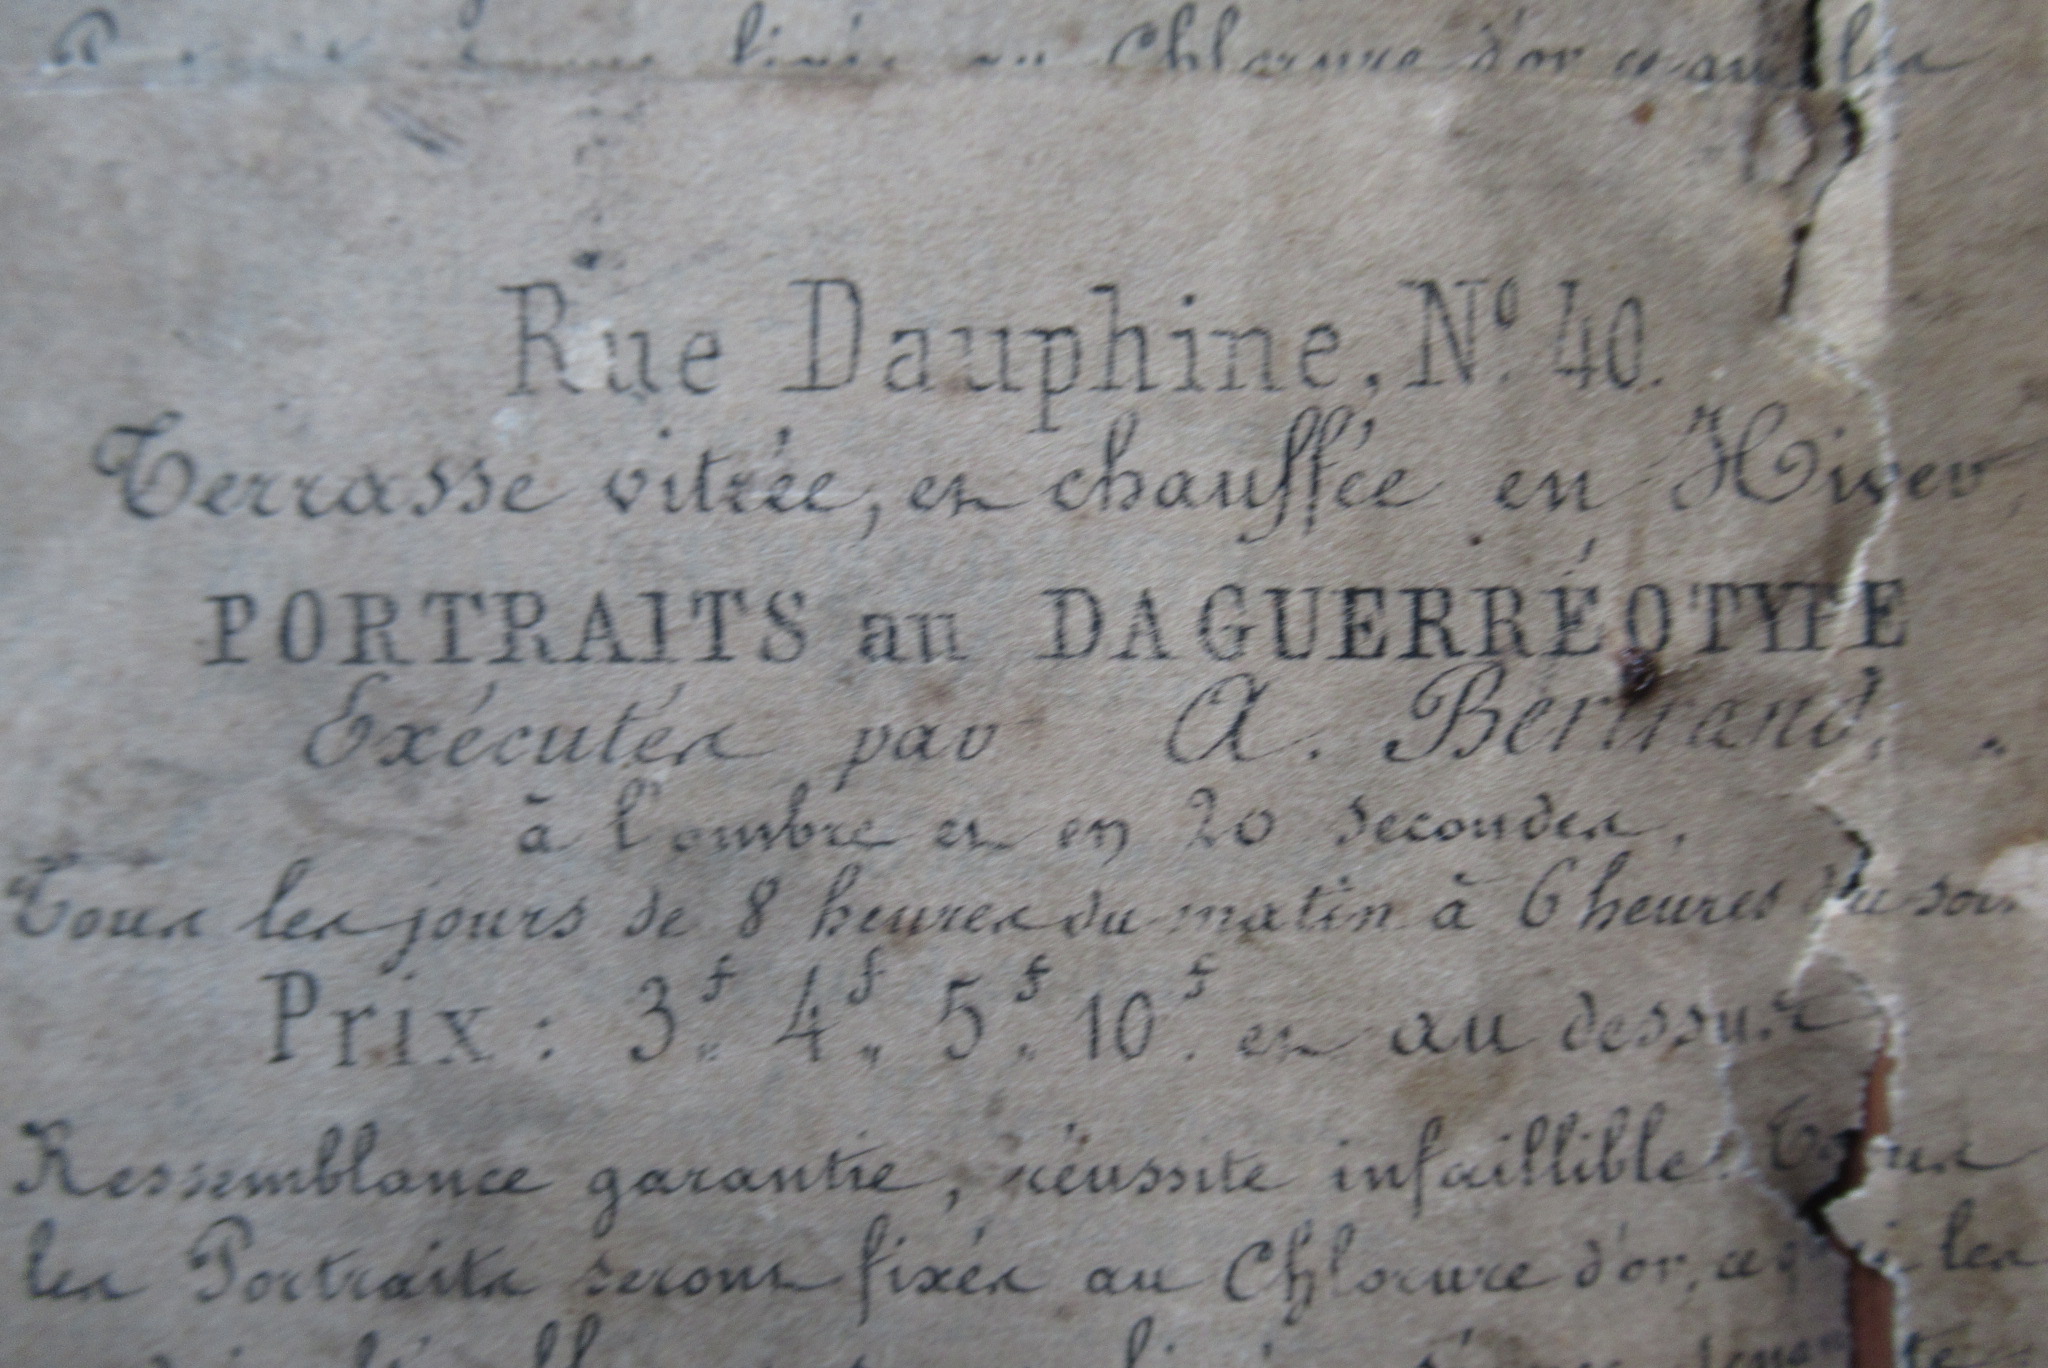 au Chlorure d'or les
Rue Dauphine, Nº. 40.
Terrasse vitrée, et chauffée en Hiver,
PORTRAITS au DAGUERRÉOTYPE
Exécutés par A. Bertrand,
à l'ombre et en 20 secondes,
Tous les jours de 8 heures du matin à 6 heures du soir
Prix : 3f„ 4f„ 5f„ 10f. et au dessus
Ressemblance garantie, réussite infaillible. Tous
les Portraits seront fixés au Chlorure d'or, ce qui les